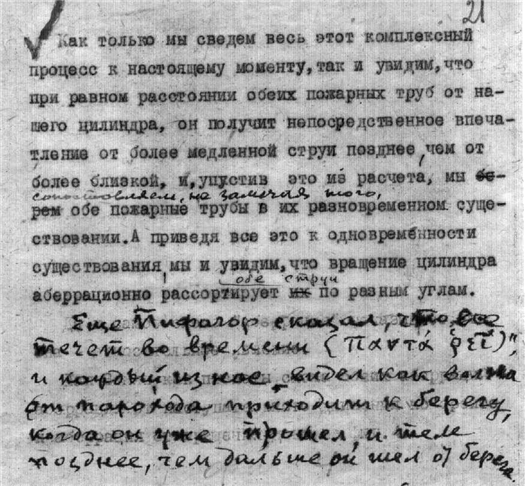 21
Как только мы сведем весь этот комплексный
процесс к настоящему моменту, так и увидим, что
при равном расстоянии обеих пожарных труб от на-
шего цилиндра, он получит непосредственное впеча-
тление от более медленной струи позднее, чем от
более близкой, и, упустив это из расчета, мы бе-
сопоставляем, не замечая того,
рем обе пожарные трубы в их разновременном суще-
ствовании. А приведя все это к одновременности
существования, мы и увидим, что вращение цилиндра
обе струи
аберрационно рассортирует их по разным углам.
Еще Пифагор сказал, что все
течет во времени (Παντά ῥεῖ)",
и каждый из нас видел как волна
от парохода приходит к берегу,
когда он уже прошел, и тем
позднее, чем дальше он шел от берега.